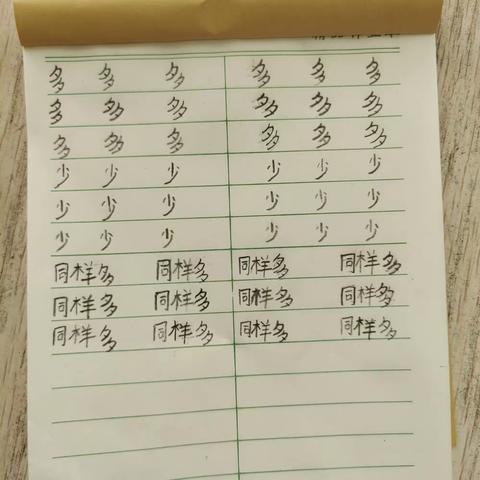 多 多 多 多 多 多
多 多 多 多 多 多
多 多 多 多 多 多
少 少 少 少 少 少
少 少 少 少 少 少
少 少 少 少 少 少
同样多 同样多 同样多 同样多
同样多 同样多 同样多 同样多
同样多 同样多 同样多 同样多